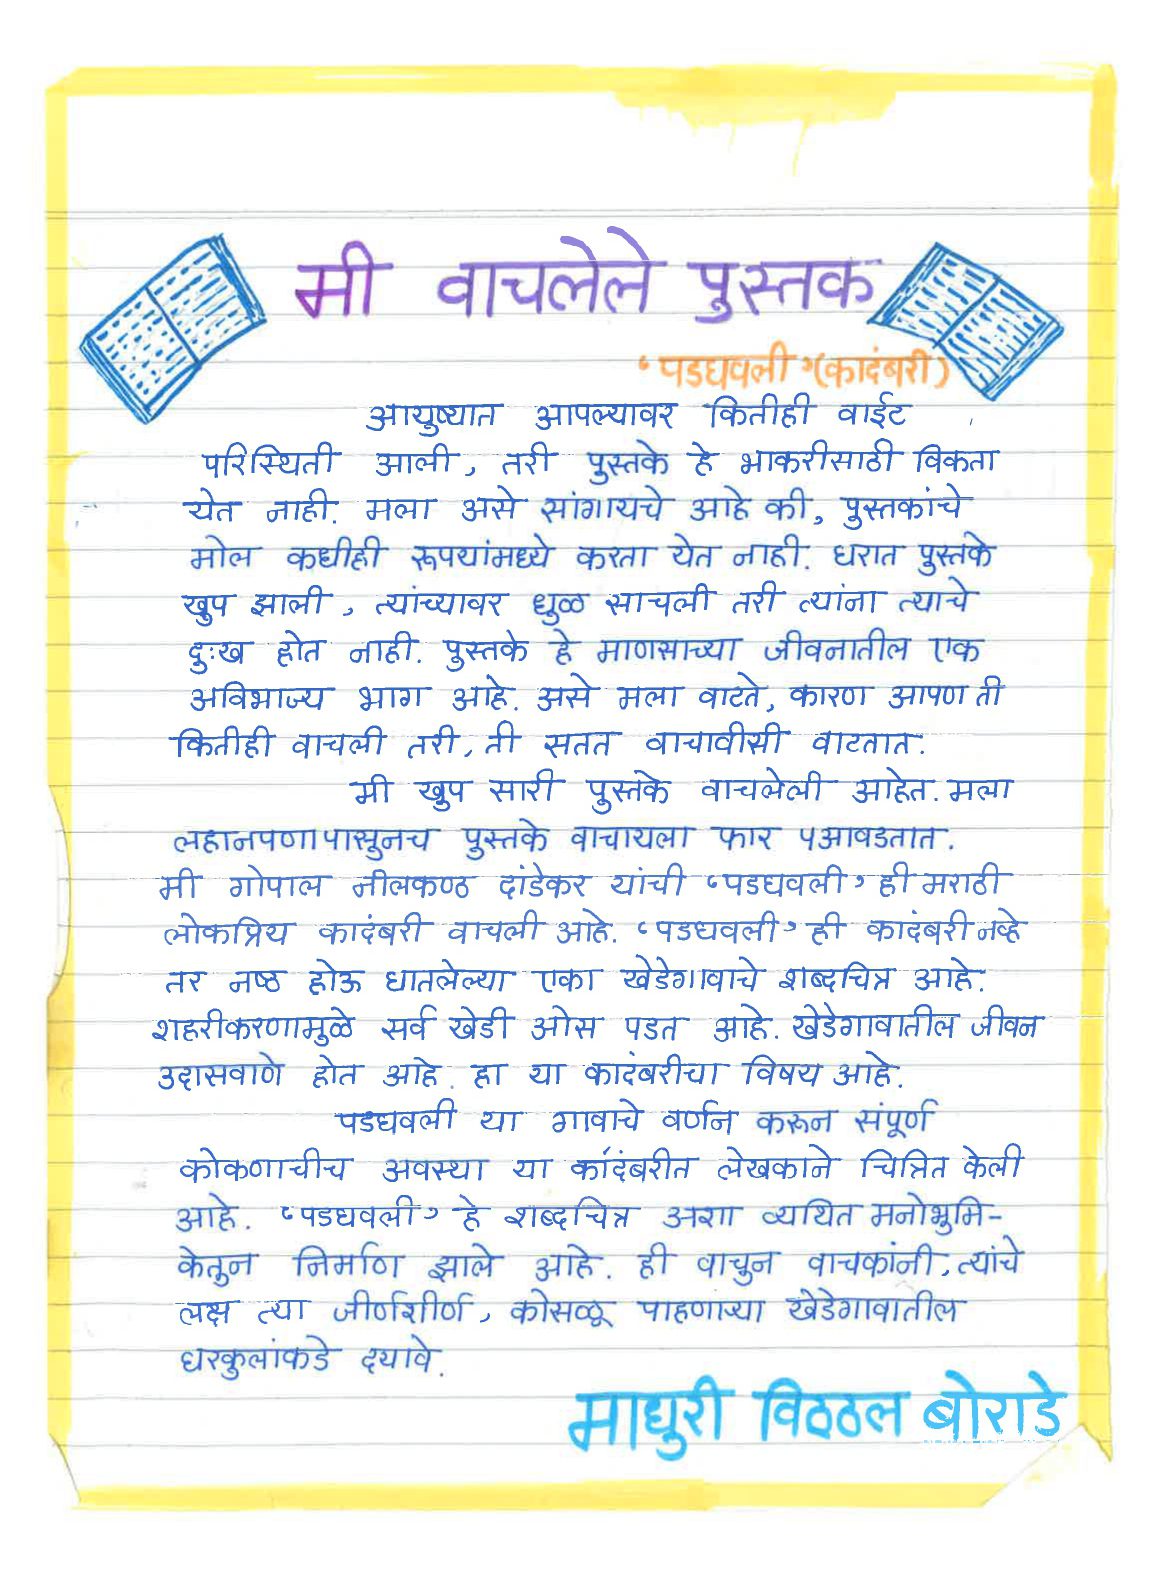 मी वाचलेले पुस्तक
‘पडघवली’ (कादंबरी)
आयुष्यात आपल्यावर कितीही वाईट
परिस्थिती आली, तरी पुस्तके हे भाकरीसाठी विकता
येत नाही. मला असे सांगायचे आहे की, पुस्तकांचे
मोल कधीही रूपयांमध्ये करता येत नाही. घरात पुस्तके
खुप झाली, त्यांच्यावर धुळ साचली तरी त्यांना त्याचे
दुःख होत नाही. पुस्तके हे माणसाच्या जीवनातील एक
अविभाज्य भाग आहे. असे मला वाटते, कारण आपण ती
कितीही वाचली तरी, ती सतत वाचावीसी वाटतात.
मी खुप सारी पुस्तके वाचलेली आहेत. मला
लहानपणापासुनच पुस्तके वाचायला फार आवडतात.
मी गोपाल नीलकण्ठ दांडेकर यांची ‘पडघवली’ ही मराठी
लोकप्रिय कादंबरी वाचली आहे. ‘पडघवली’ ही कादंबरी नव्हे
तर नष्ठ होऊ घातलेल्या एका खेडेगावाचे शब्दचित्र आहे.
शहरीकरणामुळे सर्व खेडी ओस पडत आहे. खेडेगावातील जीवन
उदासवाणे होत आहे. हा या कादंबरीचा विषय आहे.
पडघवली या गावाचे वर्णन करून संपूर्ण
कोकणाचीच अवस्था या कांदंबरीत लेखकाने चित्रित केली
आहे. ‘पडघवली’ हे शब्दचित्र अशा व्यथित मनोभुमि-
केतुन निर्माण झाले आहे. ही वाचुन वाचकांनी, त्यांचे
लक्ष त्या जीर्णशीर्ण, कोसळू पाहणाऱ्या खेडेगावातील
घरकुलांकडे दयावे.
माधुरी विठठल बोराडे